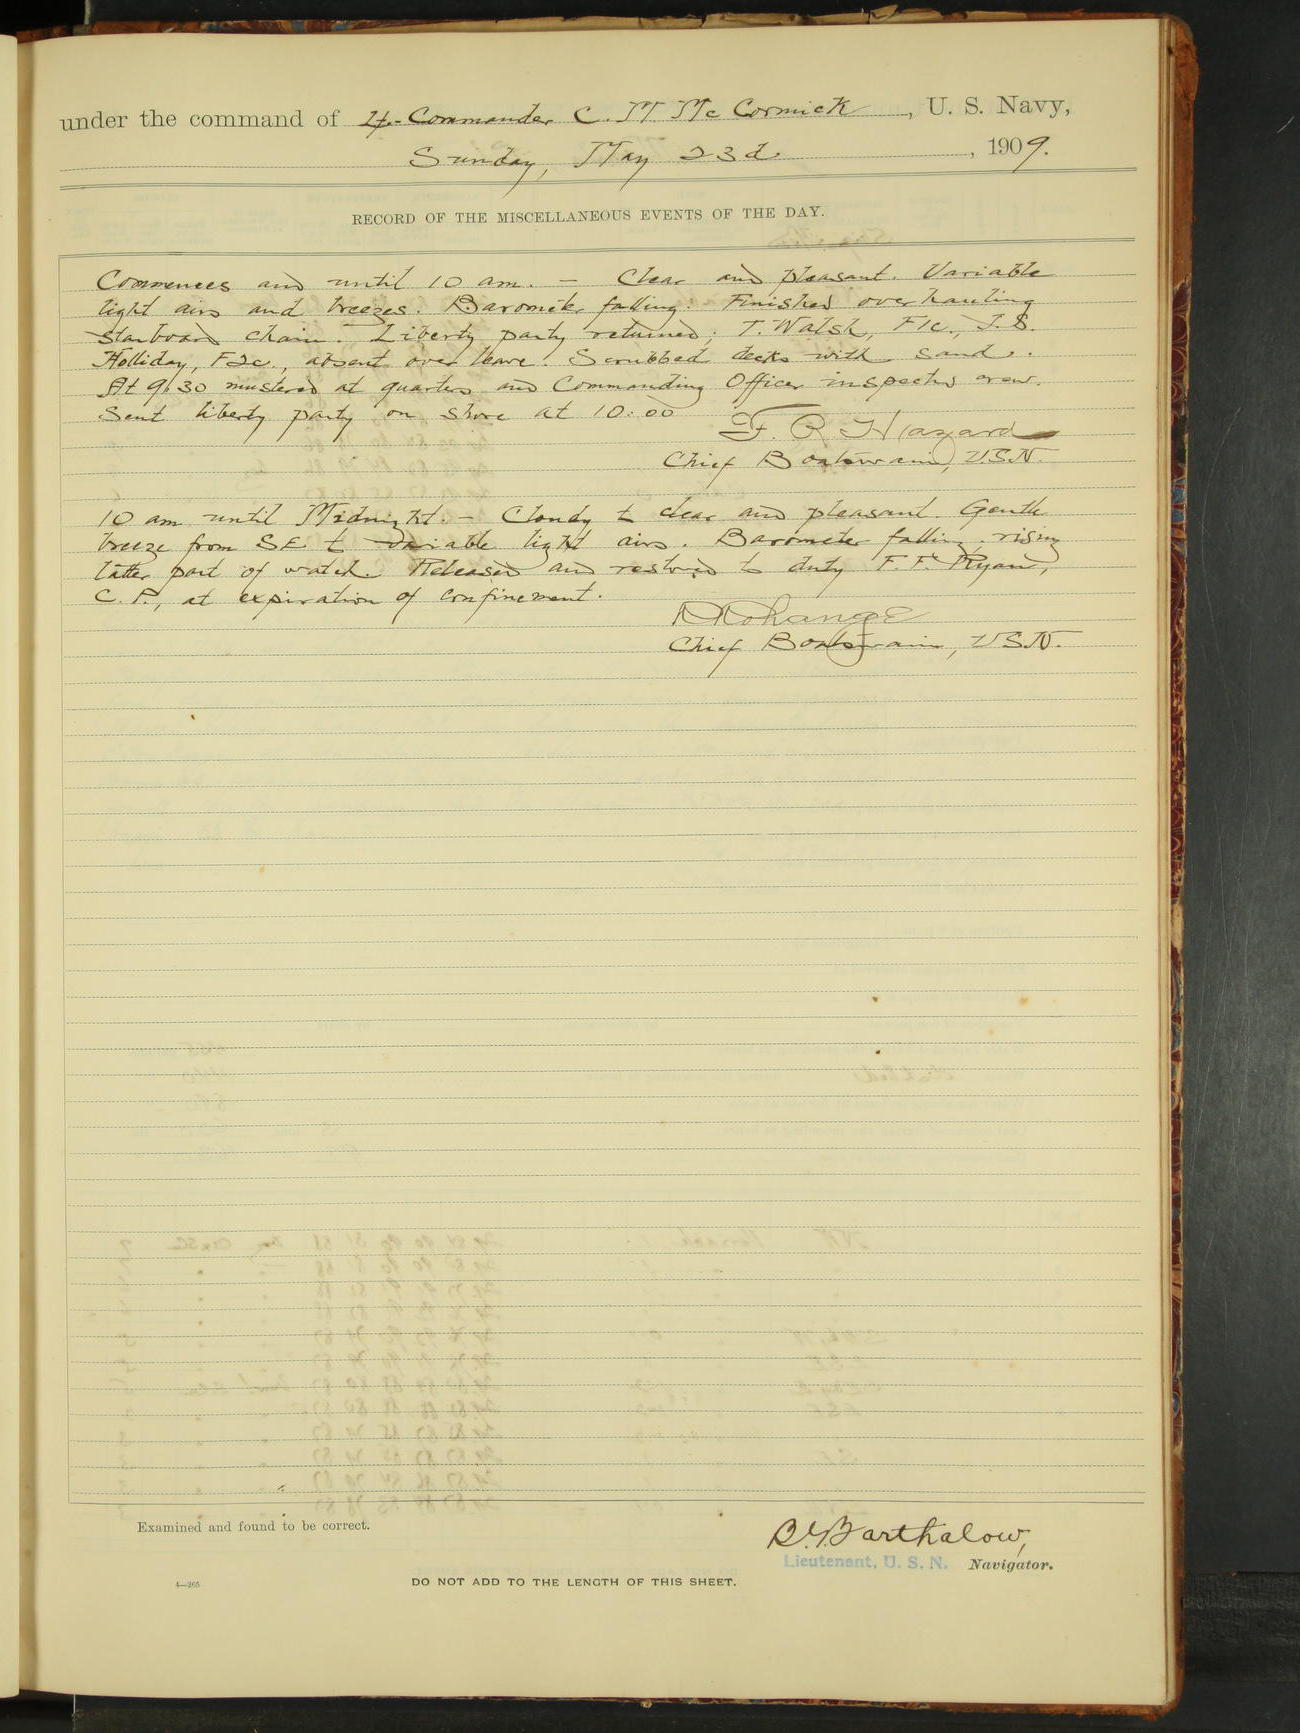 under the command of Lt. Commander C. M McCormick, U. S. Navy,
Sunday, May 23d, 1909.
RECORD OF THE MISCELLANEOUS EVENTS OF THE DAY.
Commences and until 10 am. - Clear and pleasant. Variable
light airs and breezes. Barometer falling. Finished overhauling
starboard chain. Liberty party returned; T. Walsh, F1c., J. S.
Holliday, F2c., absent over leave. Scrubbed decks with sand.
At 9:30 mustered at quarters and Commanding Officer inspected crew.
Sent liberty party on shore at 10:00
F. R Hazard
Chief Boatswain, U.S.N.
10 am until Midnight. - Cloudy to clear and pleasant. Gentle
breeze from SE to variable light airs. Barometer falling, rising
latter part of watch. Released and restored to duty F. F. Ryan,
C. P., at expiration of confinement.
Chief Boatswain, U.S.N.
Examined and found to be correct.
Barthalow,
Lieutenant, U. S. N. Navigator.
4—265
DO NOT ADD TO THE LENGTH OF THIS SHEET.